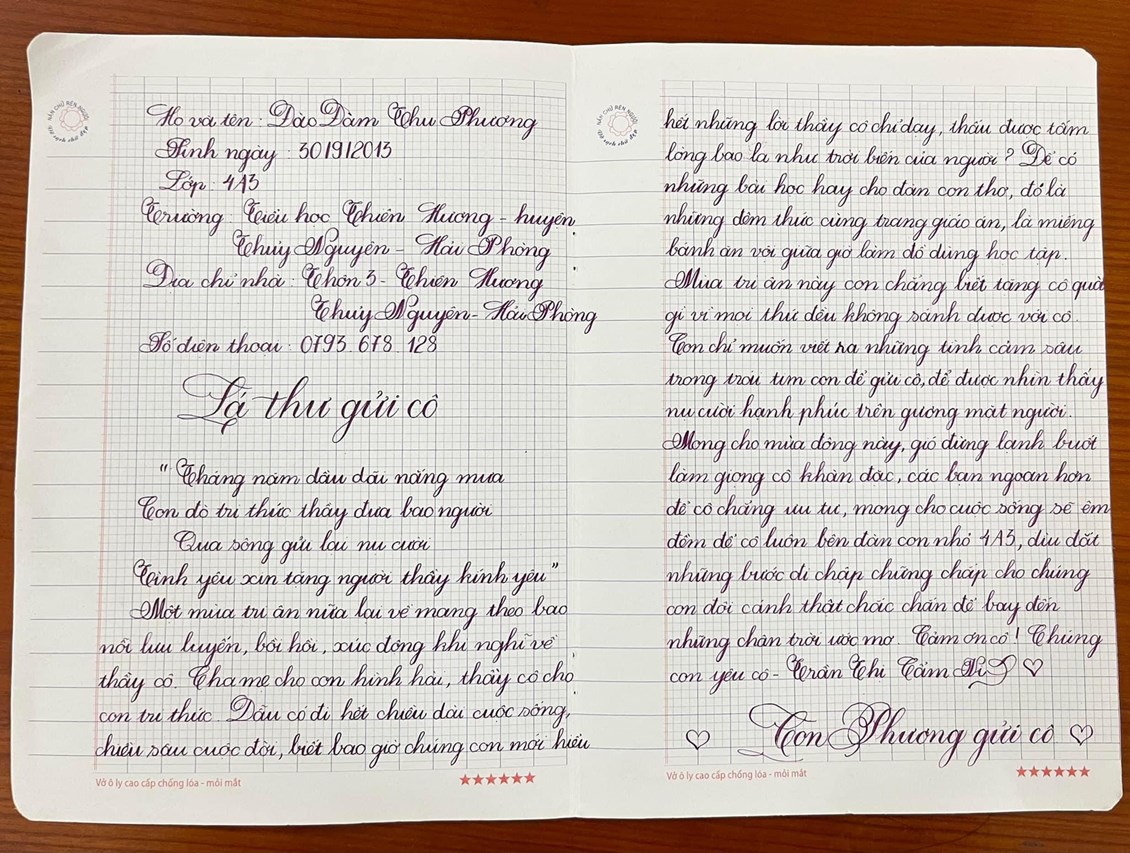 Họ và tên : Đào Đàm Thu Phương
Sinh ngày : 30/9/2013
Lớp : 4A3
Trường : Tiểu học Thiên Hương - huyện
Thuỷ Nguyên - Hải Phòng
Địa chỉ nhà : Thôn 3 - Thiên Hương
Thuỷ Nguyên - Hải Phòng
Số điện thoại : 0793. 678. 128
Lá thư gửi cô
"Tháng năm dầu dãi nắng mưa
Con đò tri thức thầy đưa bao người
Qua sông gửi lại nụ cười
Tình yêu xin tặng người thầy kính yêu"
Một mùa tri ân nữa lại về mang theo bao
nỗi lưu luyến, bồi hồi, xúc động khi nghĩ về
thầy cô. Cha mẹ cho con hình hài, thầy cô cho
con tri thức. Dẫu có đi hết chiều dài cuộc sống,
chiều sâu cuộc đời, biết bao giờ chúng con mới hiểu
Vở ô ly cao cấp chống lóa - mỏi mắt
NẮN CHỮ RÈN NGƯỜI
Giữ vở sạch chữ đẹp
hết những lời thầy cô chỉ dạy, thấu được tấm
lòng bao la như trời biển của người ? Để có
những bài học hay cho đàn con thơ, đó là
những đêm thức cùng trang giáo án, là miếng
bánh ăn vội giữa giờ làm đồ dùng học tập.
Mùa tri ân này con chẳng biết tặng cô quà
gì vì mọi thứ đều không sánh được với cô.
Con chỉ muốn viết ra những tình cảm sâu
trong trái tim con để gửi cô, để được nhìn thấy
nụ cười hạnh phúc trên gương mặt người.
Mong cho mùa đông này, gió đừng lạnh buốt
làm giọng cô khàn đặc, các bạn ngoan hơn
để cô chẳng ưu tư, mong cho cuộc sống sẽ êm
đềm để cô luôn bên đàn con nhỏ 4A3, dìu dắt
những bước đi chập chững chắp cho chúng
con đôi cánh thật chắc chắn để bay đến
những chân trời ước mơ. Cảm ơn cô ! Chúng
con yêu cô - Trần Thị Cẩm Vi ♡
♡ Con Phương gửi cô ♡
Vở ô ly cao cấp chống lóa - mỏi mắt